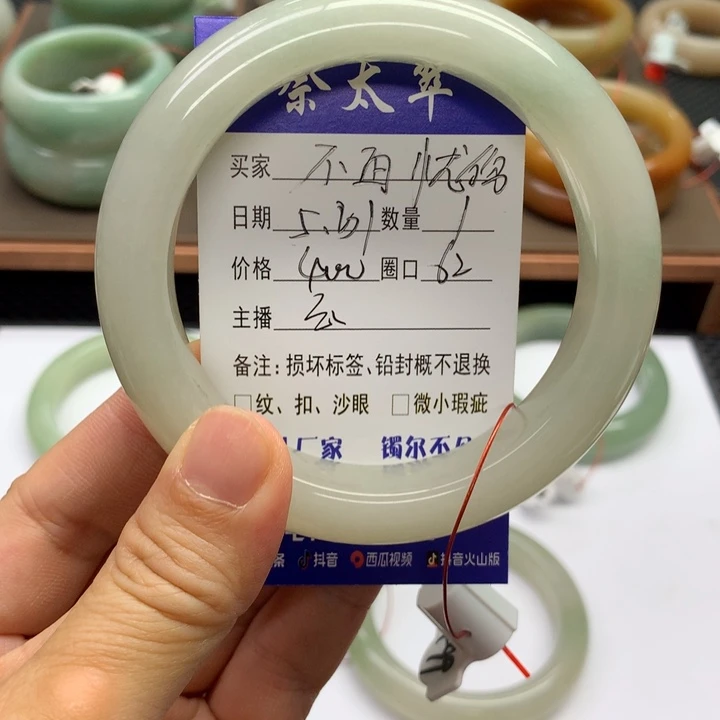 奈太翠
买家 不再忧伤
日期 5.31 数量 1
价格 400 圈口 62
主播 云
备注:损坏标签、铅封概不退换
□纹、扣、沙眼 □微小瑕疵
厂家 镯尔不凡
条 抖音 西瓜视频 抖音火山版